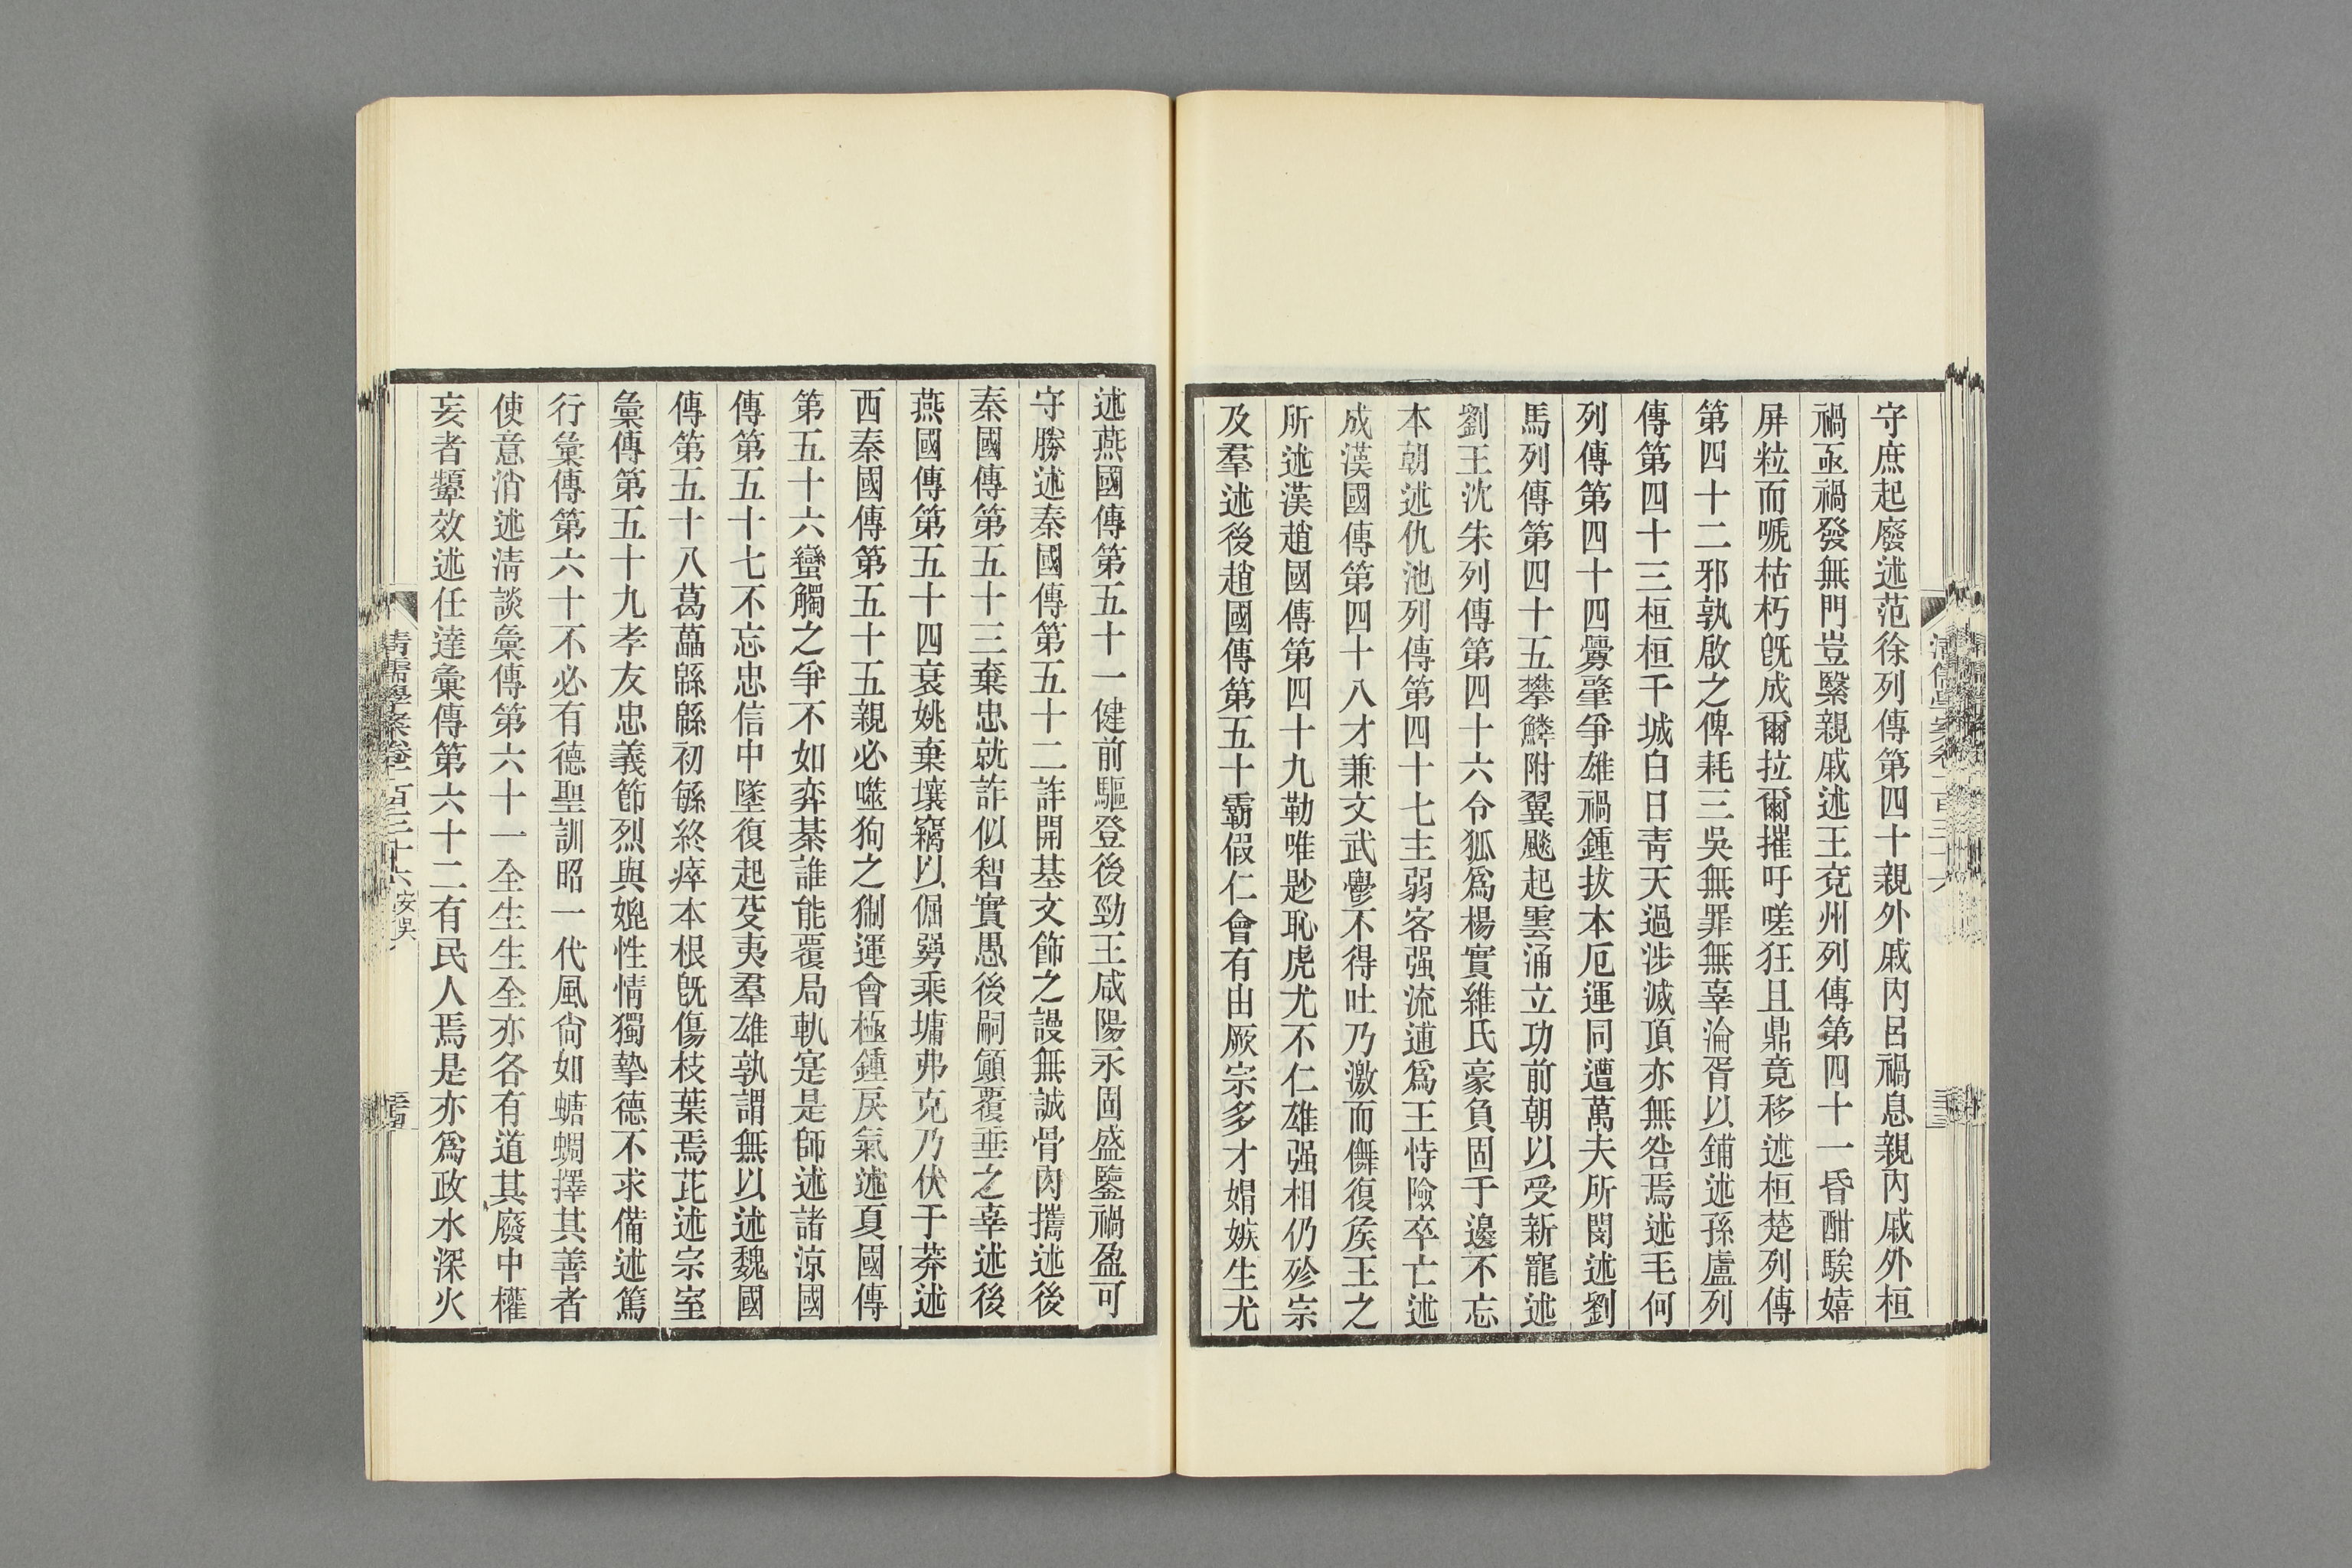 守庶起廢述范徐列傳第四十親外戚內呂禍息親內戚外桓
禍亟禍發無門豈繄親戚述王兗州列傳第四十一昏酣騃嬉
屏粒而嗁枯朽旣成爾拉爾摧吁嗟狂且鼎竟移述桓楚列傳
第四十二邪孰啟之俾耗三吳無罪無辜淪胥以鋪述孫盧列
傳第四十三桓桓千城白日靑天過涉滅頂亦無咎焉述毛何
列傳第四十四釁肇爭雄禍鍾拔本厄運同遭萬夫所閔述劉
馬列傳第四十五攀鱗附翼飈起雲涌立功前朝以受新寵述
劉王沈朱列傳第四十六令狐爲楊實維氏豪負固于邊不忘
本朝述仇池列傳第四十七主弱客强流逋爲王恃險卒亡述
成漢國傳第四十八才兼文武鬱不得吐乃激而儛復矦王之
所述漢趙國傳第四十九勒唯尟恥虎尤不仁雄强相仍殄宗
及羣述後趙國傳第五十霸假仁會有由厥宗多才娼嫉生尤
述燕國傳第五十一健前驅登後勁王咸陽永固盛鑒禍盈可
守勝述秦國傳第五十二詐開基文飾之謾無誠骨肉攜述後
秦國傳第五十三棄忠就詐似智實愚後嗣顚覆垂之辜述後
燕國傳第五十四衰姚棄壤竊以倔彊乘墉弗克乃伏于莽述
西秦國傳第五十五親必噬狗之猘運會極鍾戾氣述夏國傳
第五十六蠻觸之爭不如弈棊誰能覆局軌寔是師述諸涼國
傳第五十七不忘忠信中墜復起芟夷羣雄孰謂無以述魏國
傳第五十八葛藟緜緜初緐終瘁本根旣傷枝葉焉芘述宗室
彙傳第五十九孝友忠義節烈與媲性情獨摯德不求備述篤
行彙傳第六十不必有德聖訓昭一代風尙如螗蜩擇其善者
使意消述淸談彙傳第六十一全生生全亦各有道其廢中權
妄者顰效述任達彙傳第六十二有民人焉是亦爲政水深火
清儒學案卷一百三十六 安吳